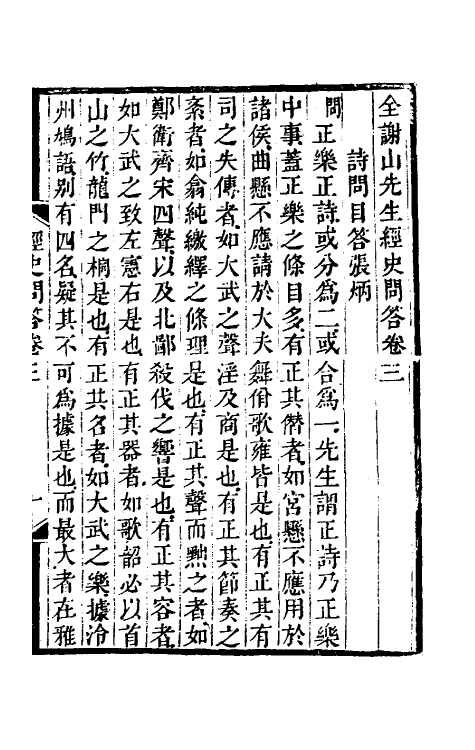 全謝山先生經史問答卷三
詩問目答張炳
問正樂正詩或分爲二或合爲一先生謂正詩乃正樂
中事蓋正樂之條目多有正其僭者如宮懸不應用於
諸侯曲懸不應請於大夫舞佾歌雍皆是也有正其有
司之失傳者如大武之聲淫及商是也有正其節奏之
紊者如翕純繳繹之條理是也有正其聲而黜之者如
鄭衛齊宋四聲以及北鄙殺伐之響是也有正其容者
如大武之致左憲右是也有正其器者如歌韶必以首
山之竹龍門之桐是也有正其名者如大武之樂據泠
州鳩語别有四名疑其不可爲據是也而最大者在雅
經史問答卷三
一